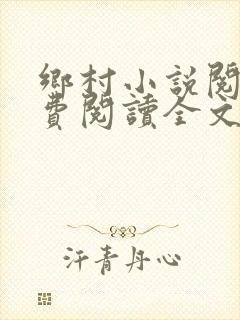 鄉村小説閱
費閱讀全文
汗青丹心